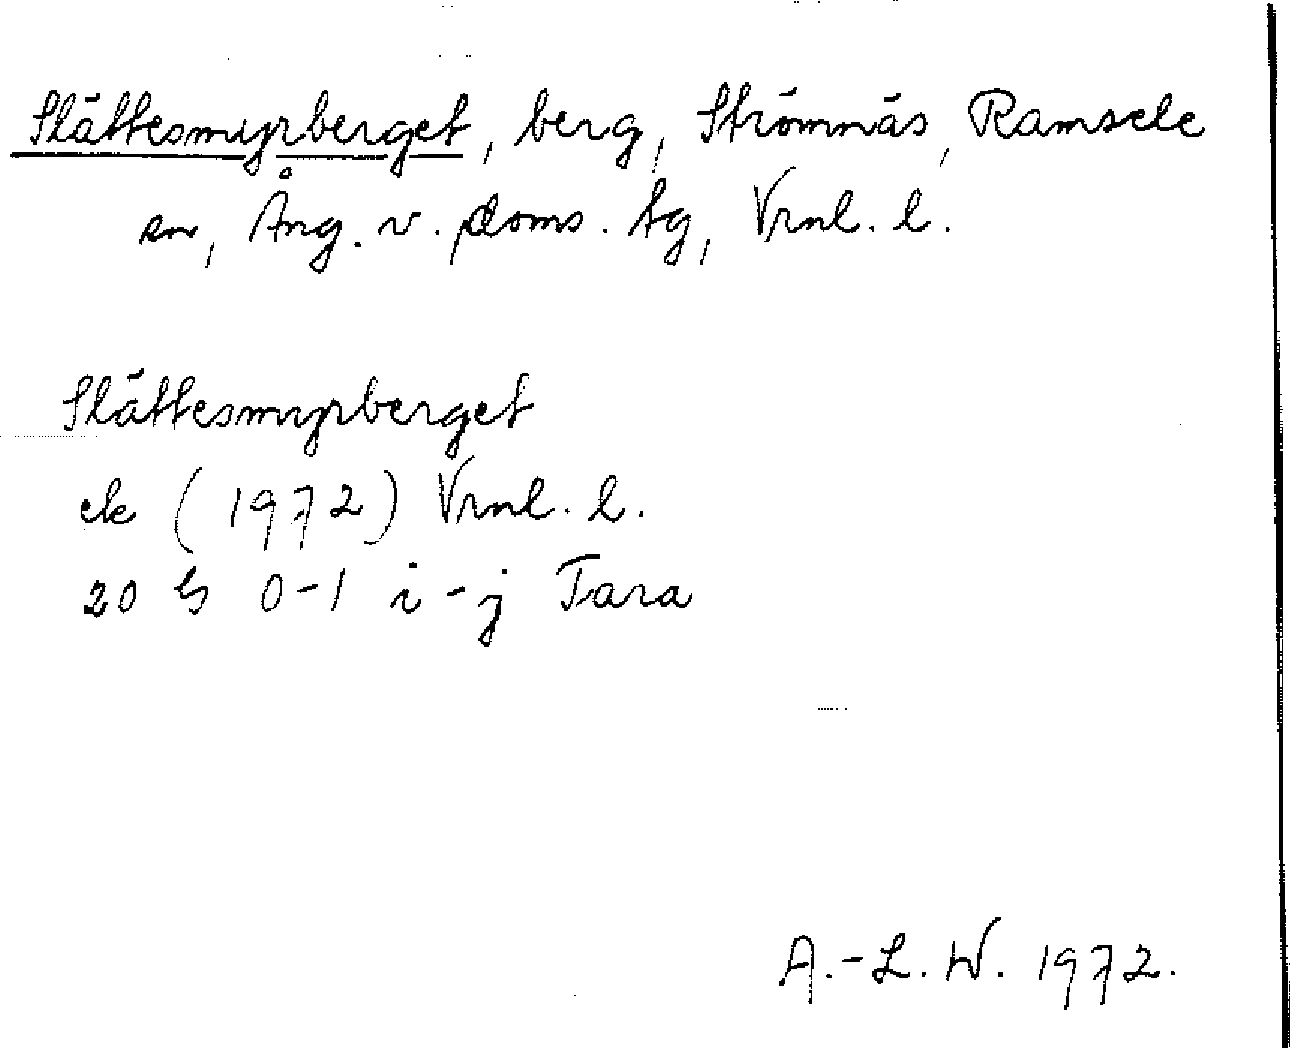 Slåttesmyrberget, berg, Strömnäs, Ramsele
sn, Ång. v. doms. tg, Vrnl. l.
Slåttesmyrberget
ek (1972) Vrnl. l.
20 G 0-1 i-j Tara
A.-L. W. 1972.